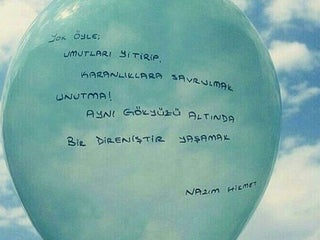 YOK ÖYLE;
UMUTLARI YİTİRİP,
KARANLIKLARA SAVRULMAK
UNUTMA!
AYNI GÖKYÜZÜ ALTINDA
BİR DİRENİŞTİR YAŞAMAK
NAZIM HİKMET